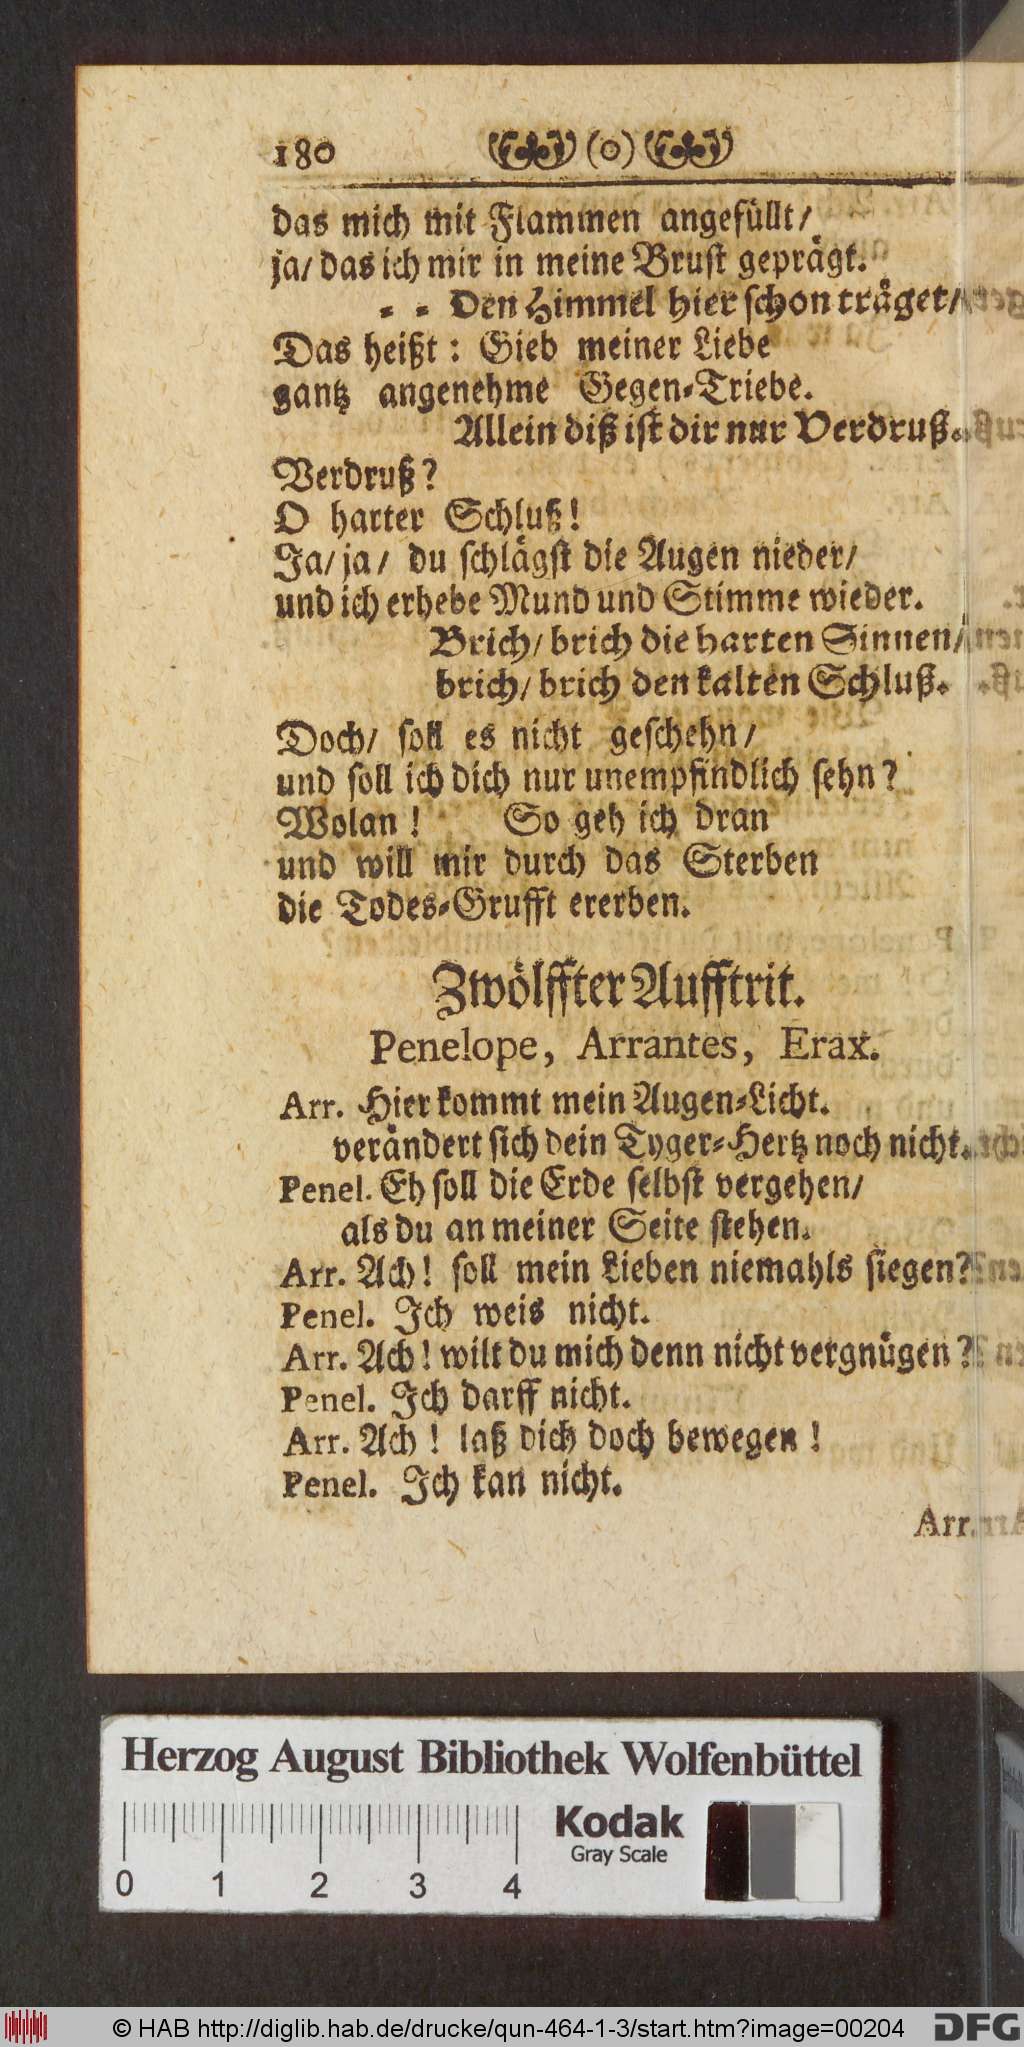 180 (o)
das mich mit Flammen angefüllt/
ja/ das ich mir in meine Brust geprägt.
= = Den Himmel hier schon träget/
Das heißt: Gieb meiner Liebe
gantz angenehme Gegen=Triebe.
Allein diß ist dir nur Verdruß.
Verdruß?
O harter Schluß!
Ja/ ja/ du schlägst die Augen nieder/
und ich erhebe Mund und Stimme wieder.
Brich/ brich die harten Sinnen/
brich/ brich den kalten Schluß.
Doch/ soll es nicht geschehn/
und soll ich dich nur unempfindlich sehn?
Wolan! So geh ich dran
und will mir durch das Sterben
die Todes=Grufft ererben.
Zwölffter Aufftrit.
Penelope, Arrantes, Erax.
Arr. Hier kommt mein Augen=Licht.
verändert sich dein Tyger=Hertz noch nicht.
Penel. Eh soll die Erde selbst vergehen/
als du an meiner Seite stehen.
Arr. Ach! soll mein Lieben niemahls siegen?
Penel. Ich weis nicht.
Arr. Ach! wilt du mich denn nicht vergnügen?
Penel. Ich darff nicht.
Arr. Ach! laß dich doch bewegen!
Penel. Ich kan nicht.
Arr.
Herzog August Bibliothek Wolfenbüttel
0 1 2 3 4
Kodak
Gray Scale
© HAB http://diglib.hab.de/drucke/qun-464-1-3/start.htm?image=00204
DFG